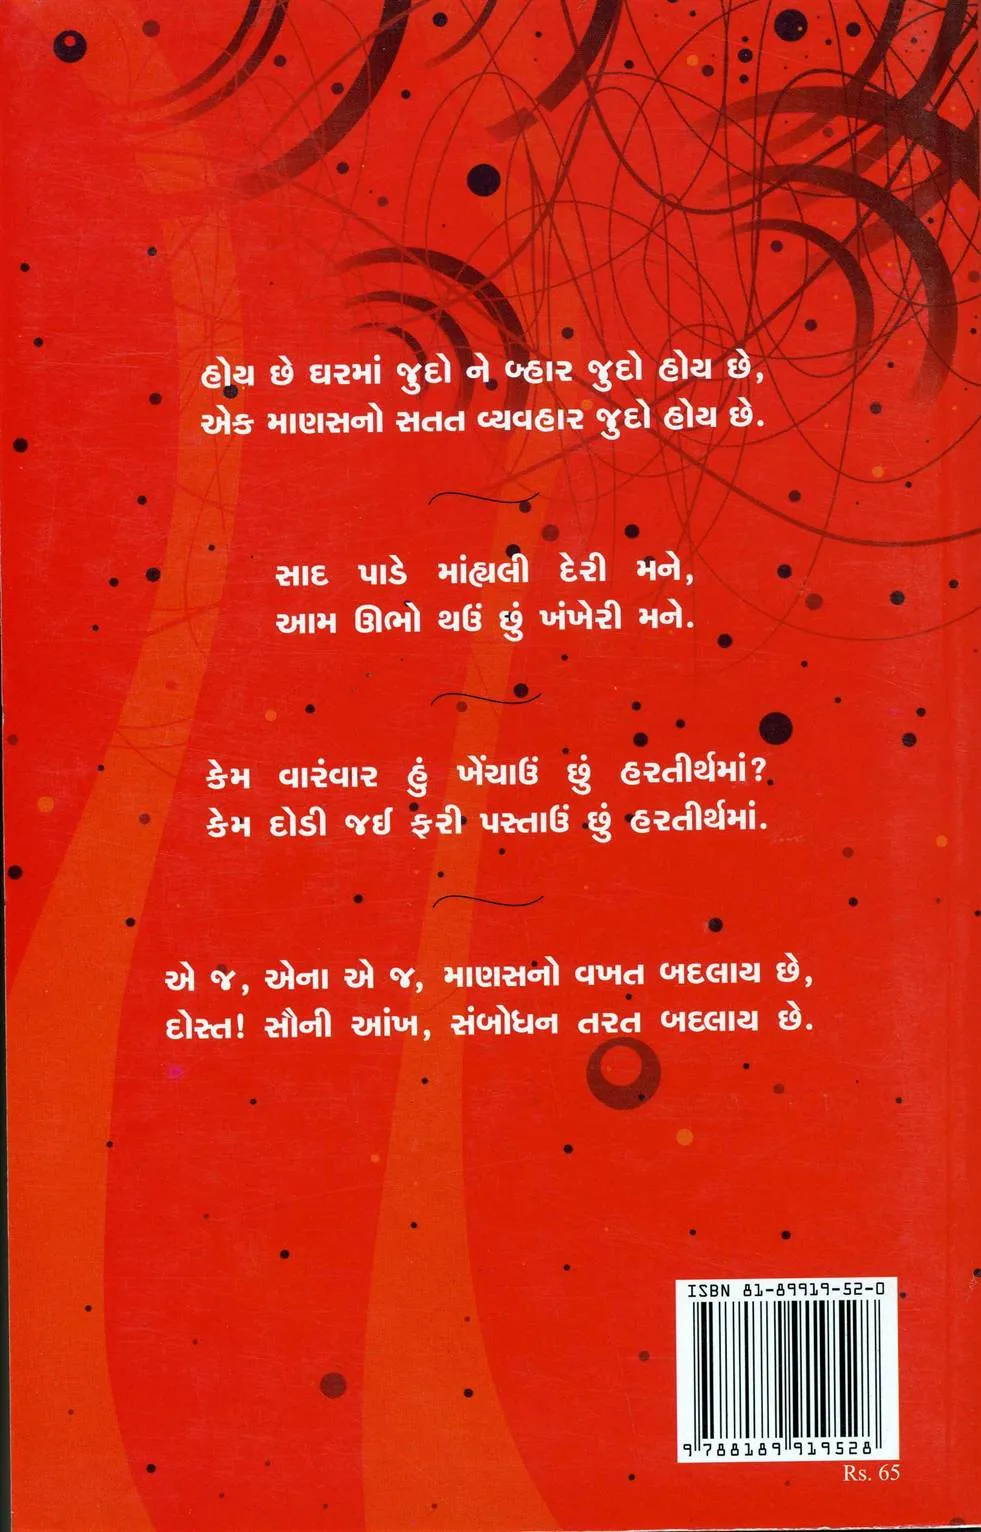 હોય છે ઘરમાં જુદો ને બ્હાર જુદો હોય છે,
એક માણસનો સતત વ્યવહાર જુદો હોય છે.
સાદ પાડે માંહ્યલી દેરી મને,
આમ ઊભો થઉં છું ખંખેરી મને.
કેમ વારંવાર હું ખેંચાઉં છું હરતીર્થમાં?
કેમ દોડી જઈ ફરી પસ્તાઉં છું હરતીર્થમાં.
એ જ, એના એ જ, માણસનો વખત બદલાય છે,
દોસ્ત! સૌની આંખ, સંબોધન તરત બદલાય છે.
ISBN 81-89919-52-0
9 788189 919528
Rs. 65